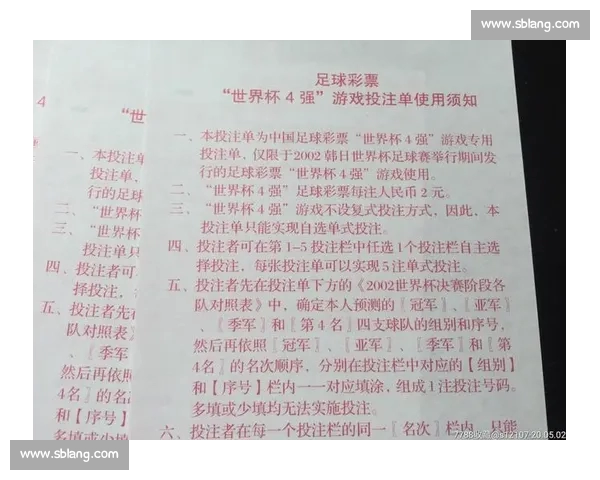 www.sblang.com
足球彩票
“世界杯 4 强”游戏投注单使用须知
一、本投注单为中国足球彩票“世界杯 4 强”游戏专用
投注单，仅限于2002 韩日世界杯足球赛举行期间发
行的足球彩票“世界杯 4 强”游戏使用。
二、“世界杯 4 强”足球彩票每注人民币 2 元。
三、“世界杯 4 强”游戏不设复式投注方式，因此，本
投注单只能实现自选单式投注。
四、投注者可在第 1-5 投注栏中任选1个投注栏自主选
择投注，每张投注单可以实现5注单式投注。
五、投注者先在投注单下方的《2002世界杯决赛阶段各
队对照表》中，确定本人预测的〖冠军〗、〖亚军〗
、〖季军〗和〖第 4 名〗四支球队的组别和序号，
然后再依照〖冠军〗、〖亚军〗、〖季军〗和〖第
4名〗的名次顺序，分别在投注栏中对应的【组别】
和【序号】栏内一一对应填涂，组成1注投注号码。
多填或少填均无法实施投注。
六、投注者在每一个投注栏的同一〖名次〗栏内，只能
4
“世
一、本投注单
投注单，
行的足球
二、“世界杯
三、“世界杯
投注单只
四、投注者可
择投注，
五、投注者先在
队对照表》
、〖季军
然后再依照
4名〗的名
和【序号】
多填或少填
六、投注
7788收藏@s12107·20.05.02
www.sblang.com